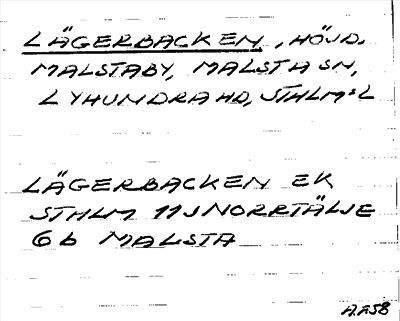 LÄGERBACKEN, HÖJD.
MALSTABY, MALSTA SN,
LYHUNDRA HD, STHLM:L
LÄGERBACKEN EK
STHLM 11J NORRTÄLJE
6b MALSTA
A.F.58